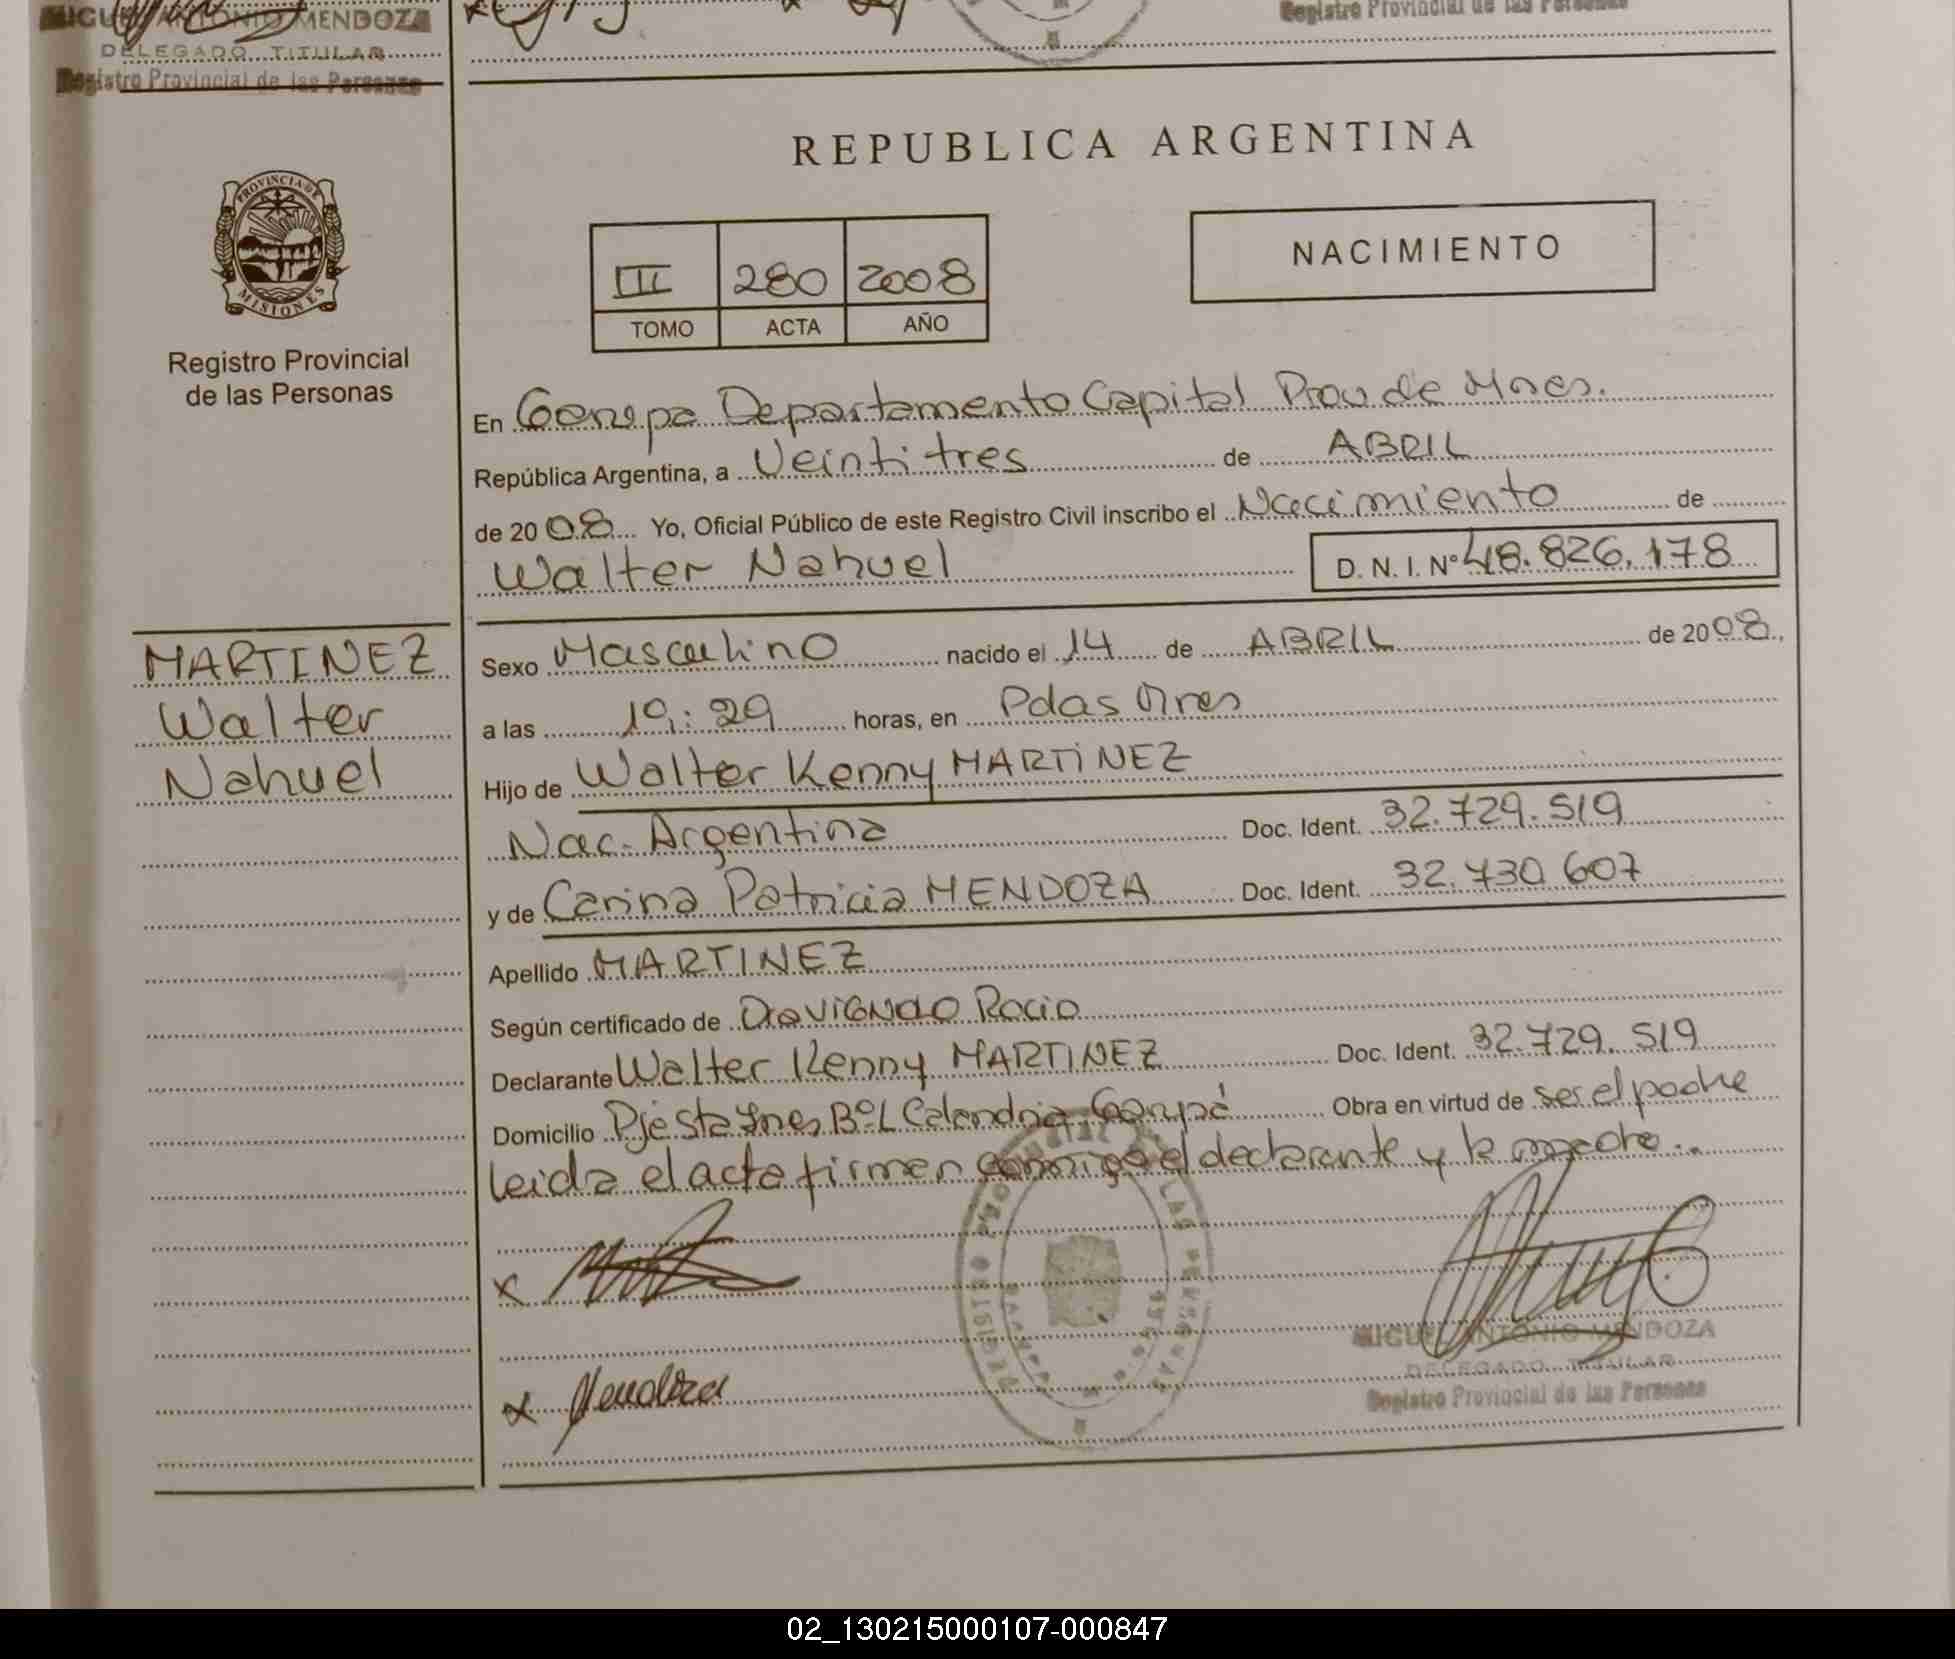 MIGUEL ANTONIO MENDOZA
DELEGADO TITULAR
Registro Provincial de las Personas
Registro Provincial de las Personas
PROVINCIA DE
MISIONES
Registro Provincial
de las Personas
REPUBLICA ARGENTINA
III 280 2008
TOMO ACTA AÑO
NACIMIENTO
En Garupa Departamento Capital Prov de Mnes.
República Argentina, a Veintitres de ABRIL
de 2008 Yo, Oficial Público de este Registro Civil inscribo el Nacimiento de
Walter Nahuel D. N. I. Nº 48.826.178
MARTINEZ
Walter
Nahuel
Sexo Masculino nacido el 14 de ABRIL de 2008,
a las 19:29 horas, en Pdas Mnes
Hijo de Walter Kenny MARTINEZ
Nac. Argentina Doc. Ident. 32.729.519
y de Carina Patricia MENDOZA Doc. Ident. 32.730.607
Apellido MARTINEZ
Según certificado de Rocio
Declarante Walter Kenny MARTINEZ Doc. Ident. 32.729.519
Domicilio Pje Sta Ynes Bº L Calandria, Garupá Obra en virtud de ser el padre
leida el acta firman conmigo el declarante y la madre.
x
x Mendoza
MIGUEL ANTONIO MENDOZA
DELEGADO TITULAR
Registro Provincial de las Personas
02_130215000107-000847